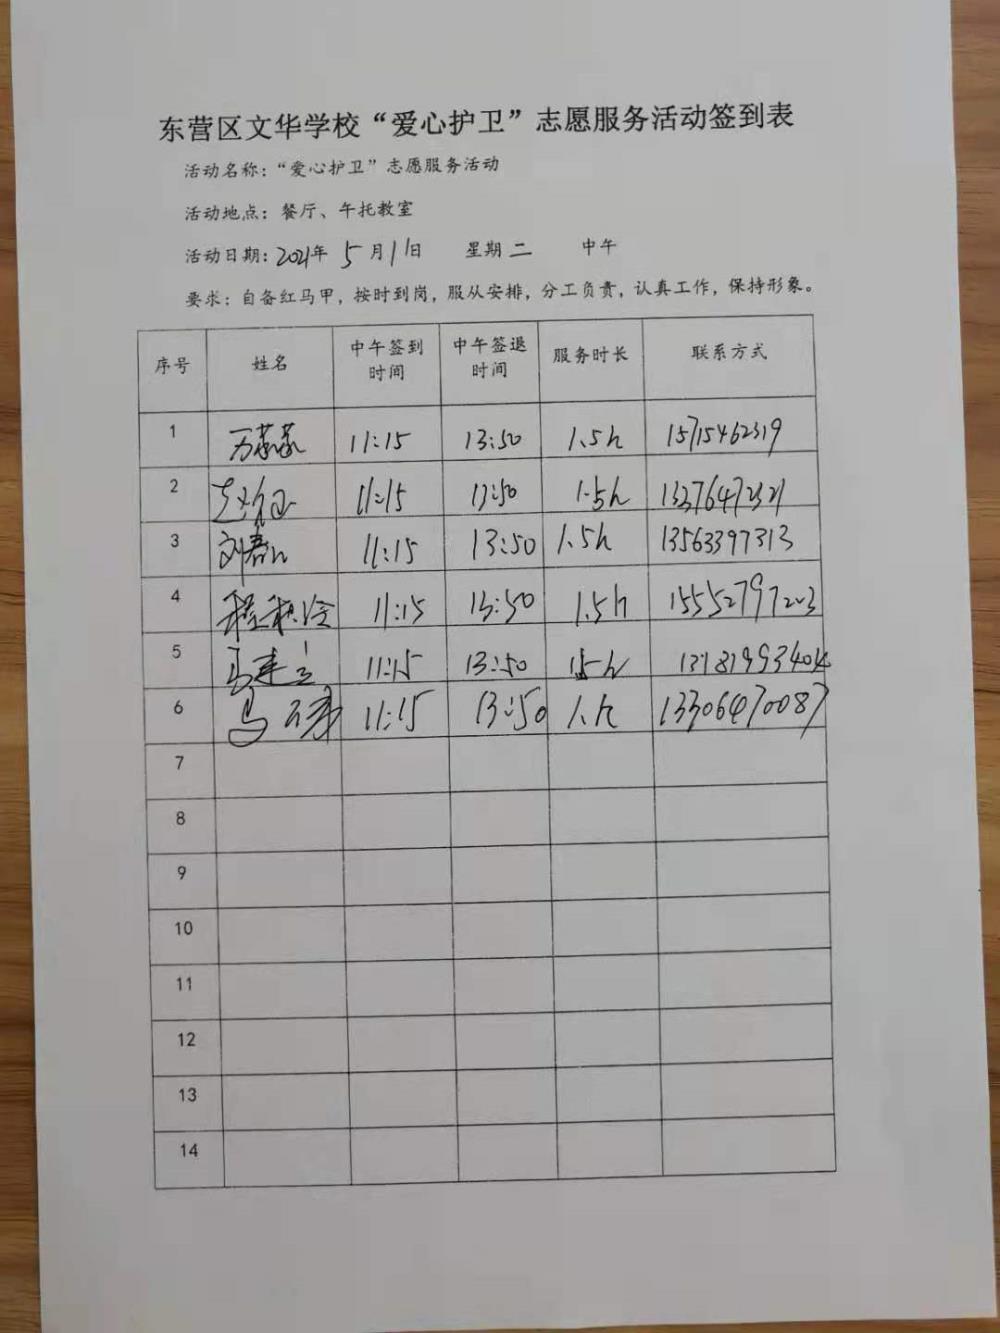 东营区文华学校“爱心护卫”志愿服务活动签到表
活动名称：“爱心护卫”志愿服务活动
活动地点：餐厅、午托教室
活动日期：2021年 5月11日 星期二 中午
要求：自备红马甲，按时到岗，服从安排，分工负责，认真工作，保持形象。
序号 姓名 中午签到时间 中午签退时间 服务时长 联系方式
1 11:15 13:50 1.5h 15715462319
2 11:15 13:50 1.5h
3 刘春 11:15 13:50 1.5h 13563397313
4 11:15 13:50 1.5h 15552797203
5 马建立 11:15 13:50 1.5h
6 马 11:15 13:50 1.h 13306470087
7
8
9
10
11
12
13
14